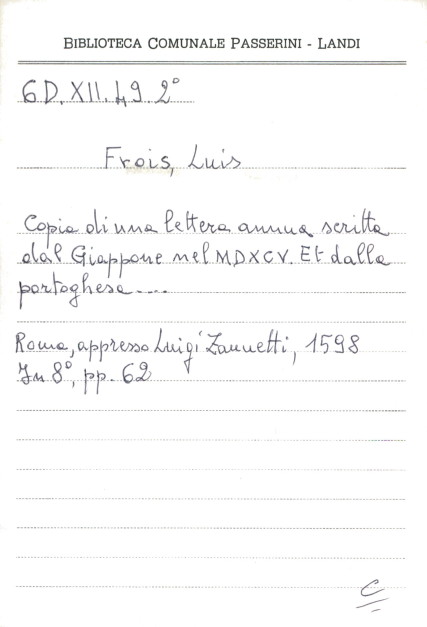 BIBLIOTECA COMUNALE PASSERINI - LANDI
6D. XII. 49. 2°
Frois, Luis
Copia di una lettera annua scritta
dal Giappone nel MDXCV. Et dalla
portoghese....
Roma, appresso Luigi Zannetti, 1598
In 8°, pp. 62
C